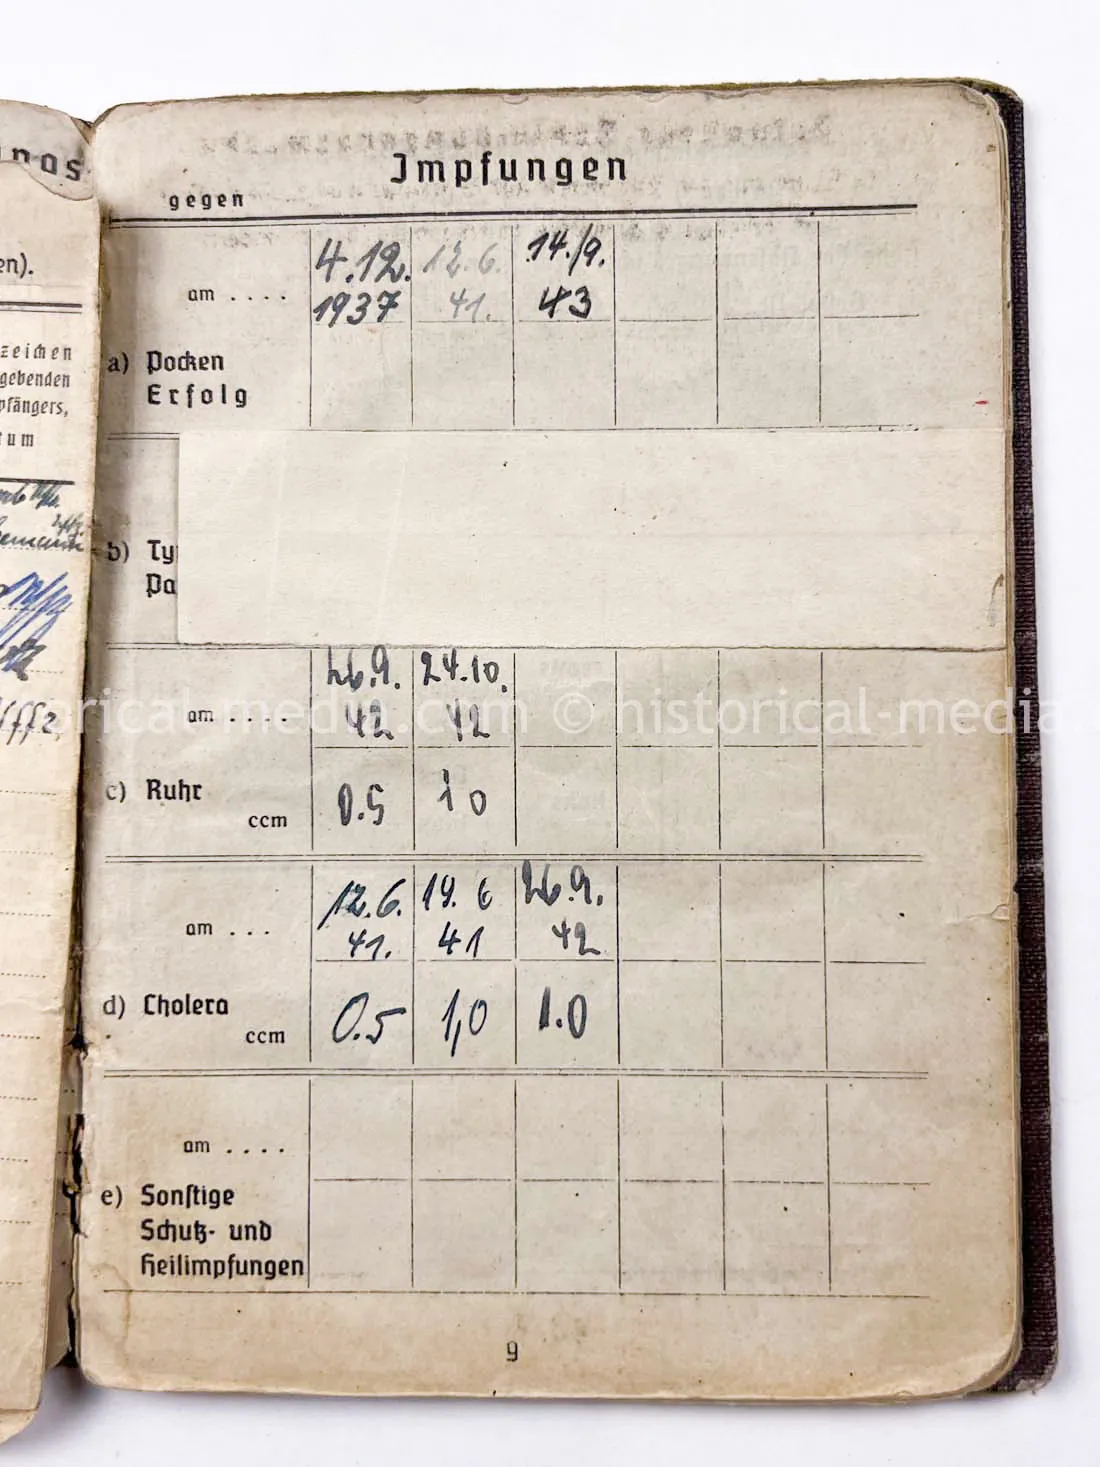 Impfungen
gegen
am . . . . 4.12. 12.6. 14./9.
1937 41. 43
a) Pocken
Erfolg
b) Ty
Pa
26.9. 24.10.
am . . . . 42 42
c) Ruhr
ccm 0.5 1 0
12.6. 19. 6 26.9.
am . . . 41. 41 42
d) Cholera
ccm 0.5 1,0 1.0
am . . . .
e) Sonstige
Schutz- und
Heilimpfungen
9
en).
zeichen
gebenden
pfängers,
tum
historical-media.com © historical-media